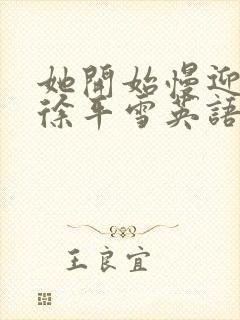 她開始慢迎
徐平雪英語
王良宜